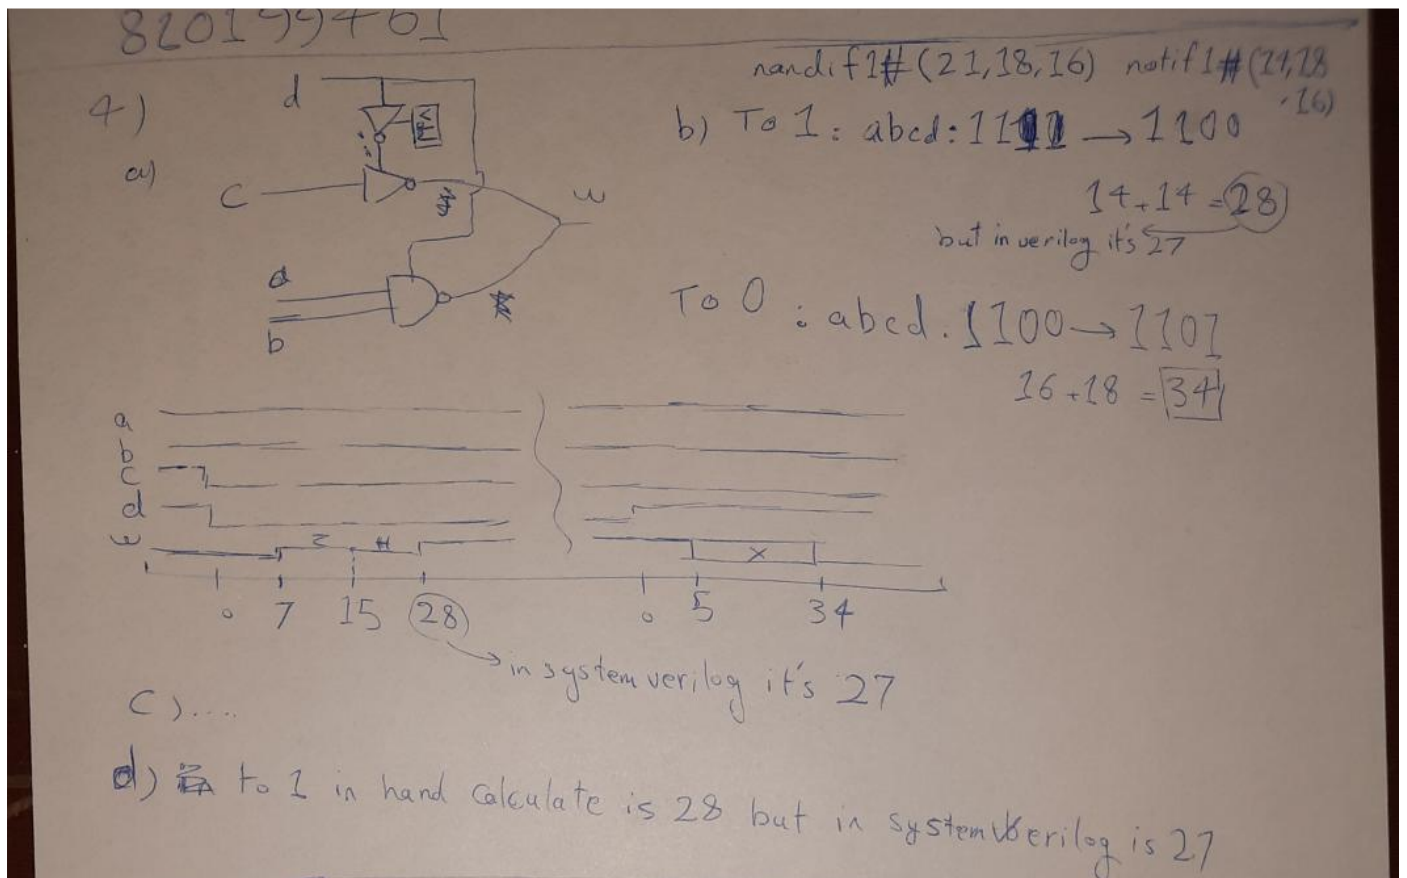 820199461
nandif1#(21,18,16) notif1#(14,18
,16)
4)
a)
d
c
w
a
b
b) To 1: abcd: 1111 → 1100
14+14 = 28
but in verilog it's 27
To 0 : abcd. 1100 → 1101
16+18 = 34
a
b
c
d
w
Z H
X
0 7 15 28 0 5 34
in system verilog it's 27
C)....
d) to 1 in hand calculate is 28 but in system verilog is 27